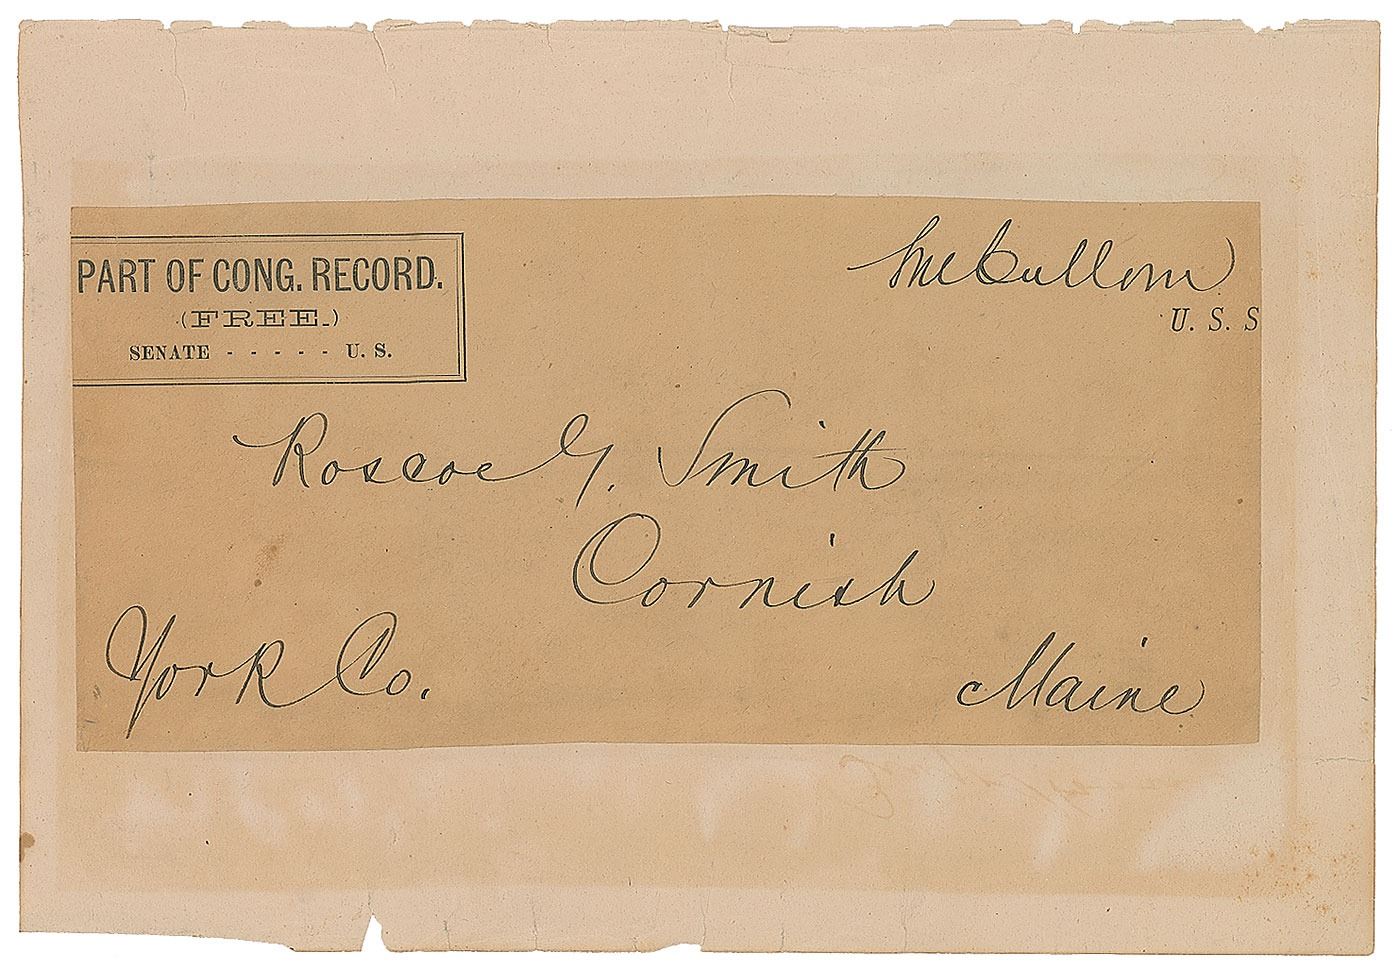 PART OF CONG. RECORD.
(FREE.)
SENATE - - - - - U. S.
SMCullom
U. S. S
Roscoe G. Smith
Cornish
York Co.
Maine